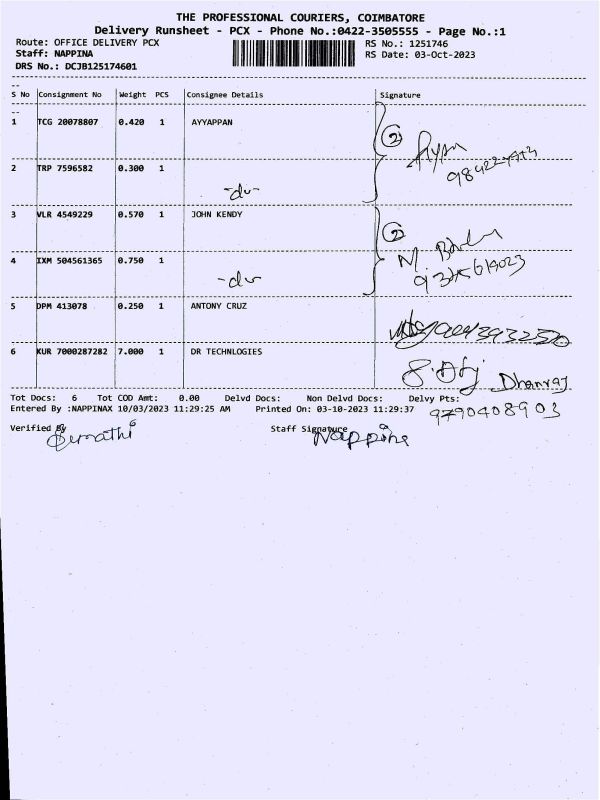 THE PROFESSIONAL COURIERS, COIMBATORE
Delivery Runsheet - PCX - Phone No.:0422-3505555 - Page No.:1
Route: OFFICE DELIVERY PCX RS No.: 1251746
Staff: NAPPINA RS Date: 03-Oct-2023
DRS No.: DCJB125174601
S No Consignment No Weight PCS Consignee Details Signature
1 TCG 20078807 0.420 1 AYYAPPAN
2 TRP 7596582 0.300 1
-do-
3 VLR 4549229 0.570 1 JOHN KENDY
4 IXM 504561365 0.750 1
-do-
5 DPM 413078 0.250 1 ANTONY CRUZ
6 KUR 7000287282 7.000 1 DR TECHNLOGIES
Dhanraj
Tot Docs: 6 Tot COD Amt: 0.00 Delvd Docs: Non Delvd Docs: Delvy Pts:
Entered By :NAPPINAX 10/03/2023 11:29:25 AM Printed On: 03-10-2023 11:29:37 9790408903
Verified By Staff Signature
Nappina